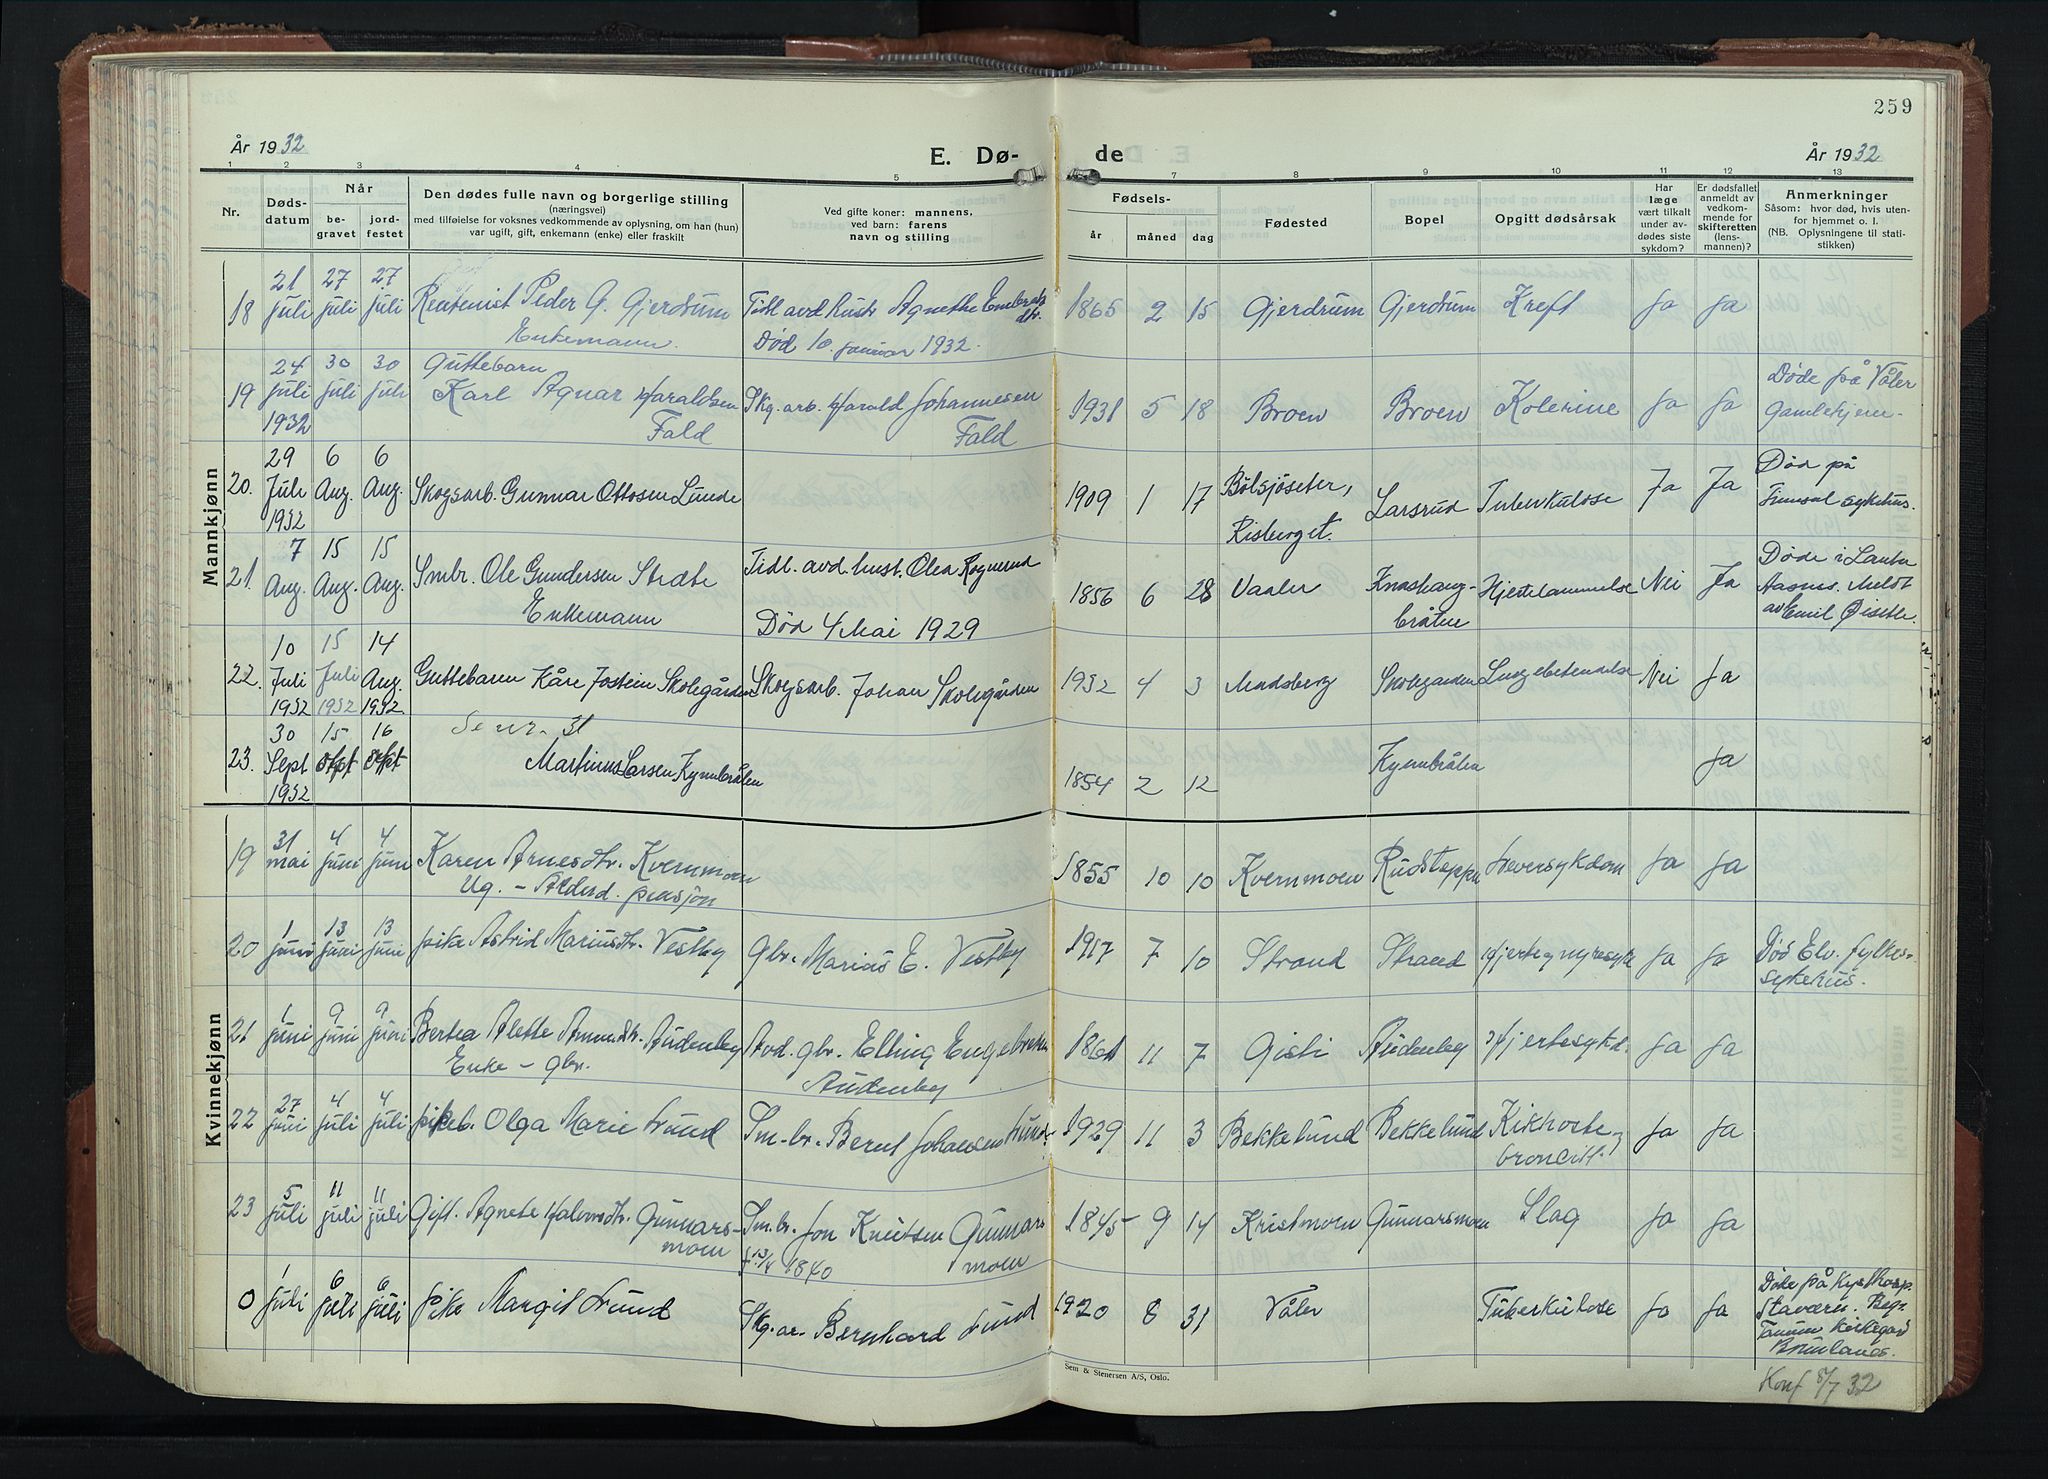 259
År 1932
E. Dø-
de
År 1932
1 2 3 4 5 7 8 9 10 11 12 13
Nr.
Døds-
datum
Når
be-
gravet
jord-
festet
Den dødes fulle navn og borgerlige stilling
(næringsvei)
med tilføielse for voksnes vedkommende av oplysning, om han (hun)
var ugift, gift, enkemann (enke) eller fraskilt
Ved gifte koner: mannens,
ved barn: farens
navn og stilling
Fødsels-
år måned dag
Fødested
Bopel
Opgitt dødsårsak
Har
læge
vært tilkalt
under av-
dødes siste
sykdom?
Er dødsfallet
anmeldt av
vedkom-
mende for
skifteretten
(lens-
mannen)?
Anmerkninger
Såsom: hvor død, hvis uten-
for hjemmet o. l.
(NB. Oplysningene til stati-
stikken)
Mannkjønn
18 21 juli 27 juli 27 juli Rentenist Peder G. Gjerdrum Tidl avd hustr Agnethe
Enkemann. Død 10. januar 1932.
1865 2 15 Gjerdrum Gjerdrum Kreft Ja Ja
19 24 juli 1932 30 juli 30 juli Guttebarn
Karl Agnar Haraldsen Fald Skg. arb. Harald Johannesen Fald
1931 5 18 Broen Broen Kolerine Ja Ja Døde på Våler
Gamlehjem.
20. 29 Juli 1932 6 Aug. 6 Aug. Skogsarb. Gunnar Ottosen Lunde
1909 1 17 Bølsjøseter,
Risberget. Larsrud Tuberkulose Ja Ja Død på
sykehus.
21. 7 Aug. 15 Aug. 15 Aug. Smbr. Ole Gundersen
Enkemann Tidl. avd. hust. Olea Rognerud
Død 4 Mai 1929
1856 6 28 Vaaler Knashaug-
bråten Hjertelammelse Nei Ja Døde i
Meldt
av Emil
22. 10 Juli 1932 15 Juli 1932 14 Aug. 1932. Guttebarn Kåre Jostein Skolegården Skogsarb. Johan Skolegården
1932 4 3 Madsberg Skolegården Lungebetendelse Nei Ja
Se nr. 31
23. 30 Sept 1932 15 okt 16 okt Martinus Larsen Kynnbråten
1854 2 12 Kynnbråten Ja
Kvinnekjønn
19 31 mai 4 juni 4 juni Karen Arnesdtr. Kvernmoen
Ug. - Alderd. pensjon
1855 10 10 Kvernmoen Rudsteppa Leversykdom Ja Ja
20 1 juni 13 juni 13 juni pike Astrid Mariusdtr. Vestby Gbr. Marius E. Vestby
1917 7 10 Strand Strand Hjerte og nyresyk Ja Ja Død Elv. fylkes-
sykehus.
21 1 juni 9 juni 9 juni Bertea Alette Amundsdtr. Audenby
Enke - gbr. Avd. gbr. Elling Engebretsen
Audenby
1861 11 7 Gisti Audenby Hjertesykd. Ja Ja
22 27 juni 4 juli 4 juli pikeb. Olga Marie Lund Sm-br. Bernt Johansen Lund
1929 11 3 Bekkelund Bekkelund Kikhoste,
broncitt. Ja Ja
23 5 juli 11 juli 11 juli Gift. Agnete Halvorsdtr. Gunnars-
moen Sm.br. Jon Knutsen Gunnars
moen
f. 13/4 1840
1845 9 14 Kristmoen Gunnarsmoen Slag Ja Ja
0 1 juli 6 juli 6 juli pike Margit Lund Skg. ar. Bernhard Lund
1920 8 31 Våler Tuberkulose Ja Ja Døde på Kysthosp.
Stavern. Begr.
Tanum kirkegård
Brunlanes.
Konf 8/7 32
Sem & Stenersen A/S, Oslo.